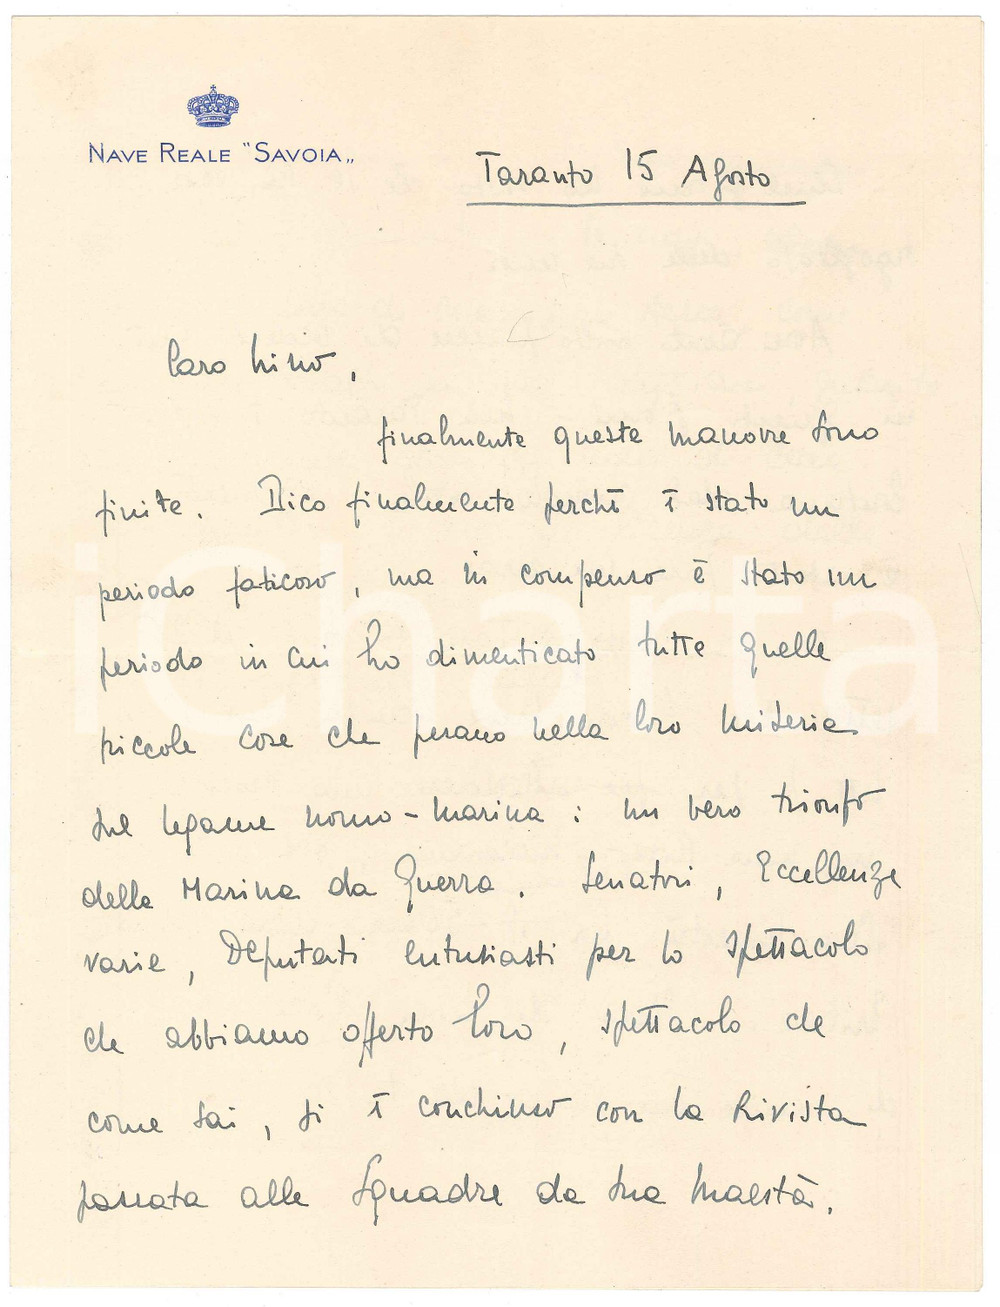 NAVE REALE "SAVOIA"
Taranto 15 Agosto
Caro Nino,
finalmente queste manovre sono
finite. Dico finalmente perchè è stato un
periodo faticoso, ma in compenso è stato un
periodo in cui ho dimenticato tutte quelle
piccole cose che pesano nella loro miseria
sul legame uomo-marina: un vero trionfo
della Marina da Guerra. Senatori, Eccellenze
varie, Deputati entusiasti per lo spettacolo
che abbiamo offerto loro, spettacolo che
come sai, si è conchiuso con la Rivista
passata alle Squadre da Sua Maestà.
iCharta